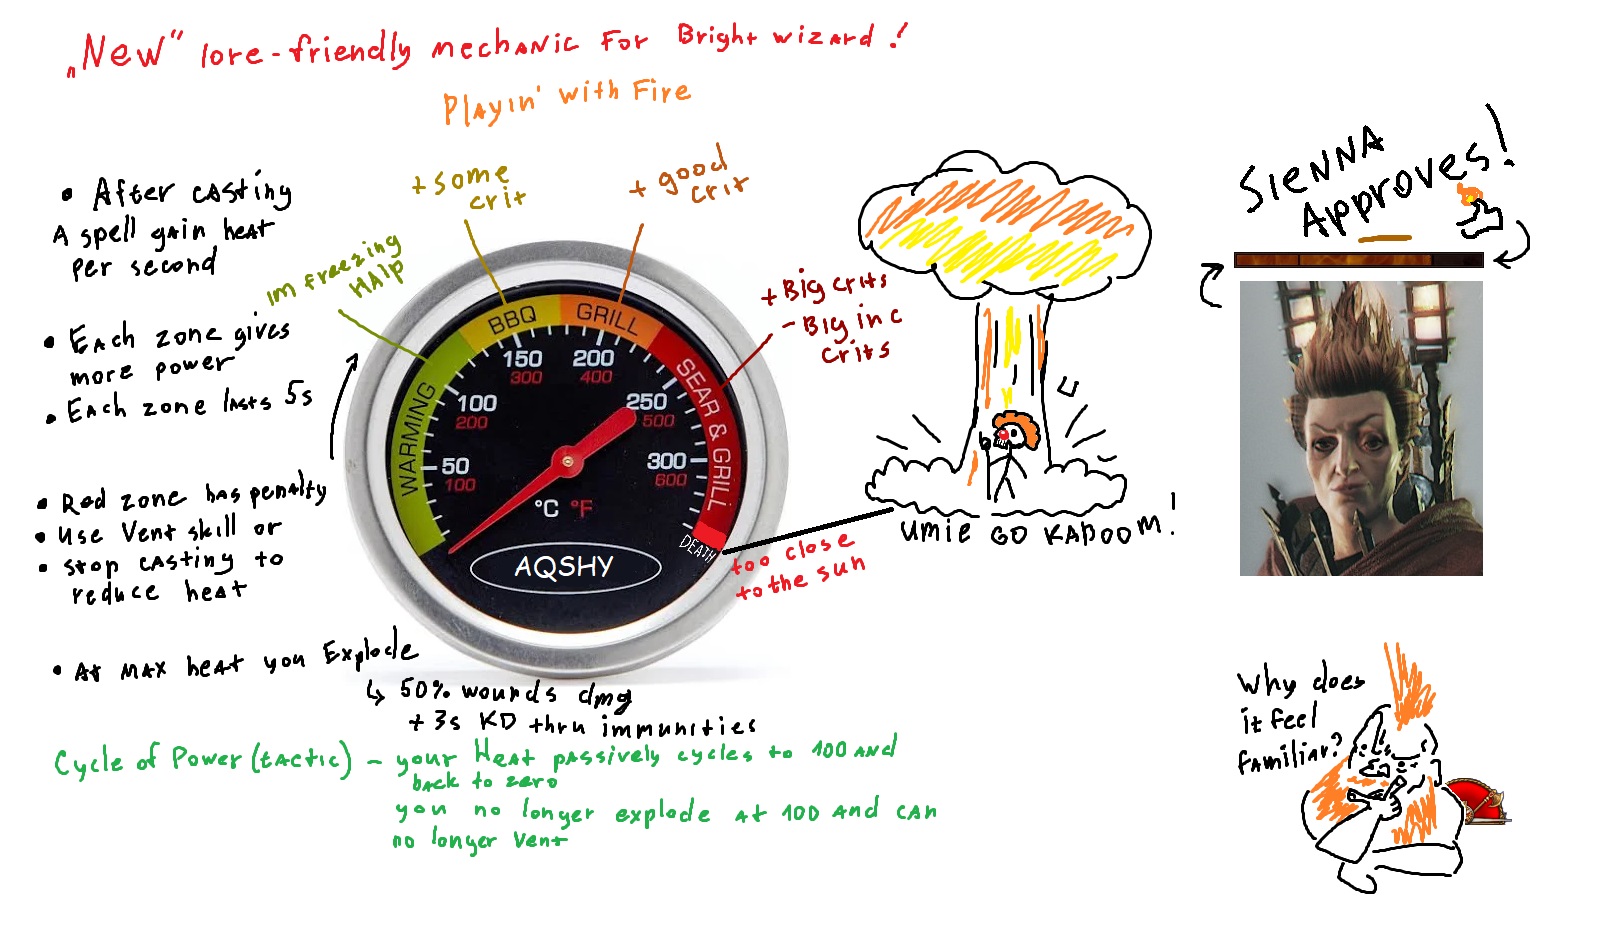 „New“ lore-friendly mechanic For Bright wizard!
Playin' with Fire
• After casting
A spell gain heat
per second
• Each zone gives
more power
• Each zone lasts 5s
• Red zone has penalty
• Use Vent skill or
• stop casting to
reduce heat
• At max heat you Explode
↳ 50% wounds dmg
+ 3s KD thru immunities
Cycle of Power (tactic) - your Heat passively cycles to 100 and
back to zero
you no longer explode at 100 and can
no longer vent
im freezing
HAlp
+ some
crit
+ good
crit
+ Big crits
- Big inc
crits
too close
to the sun
WARMING
BBQ
GRILL
SEAR & GRILL
DEATH
50
100
100
200
150
300
200
400
250
500
300
600
°C °F
AQSHY
UMIE GO KABOOM!
SIENNA
Approves!
Why does
it feel
familiar?